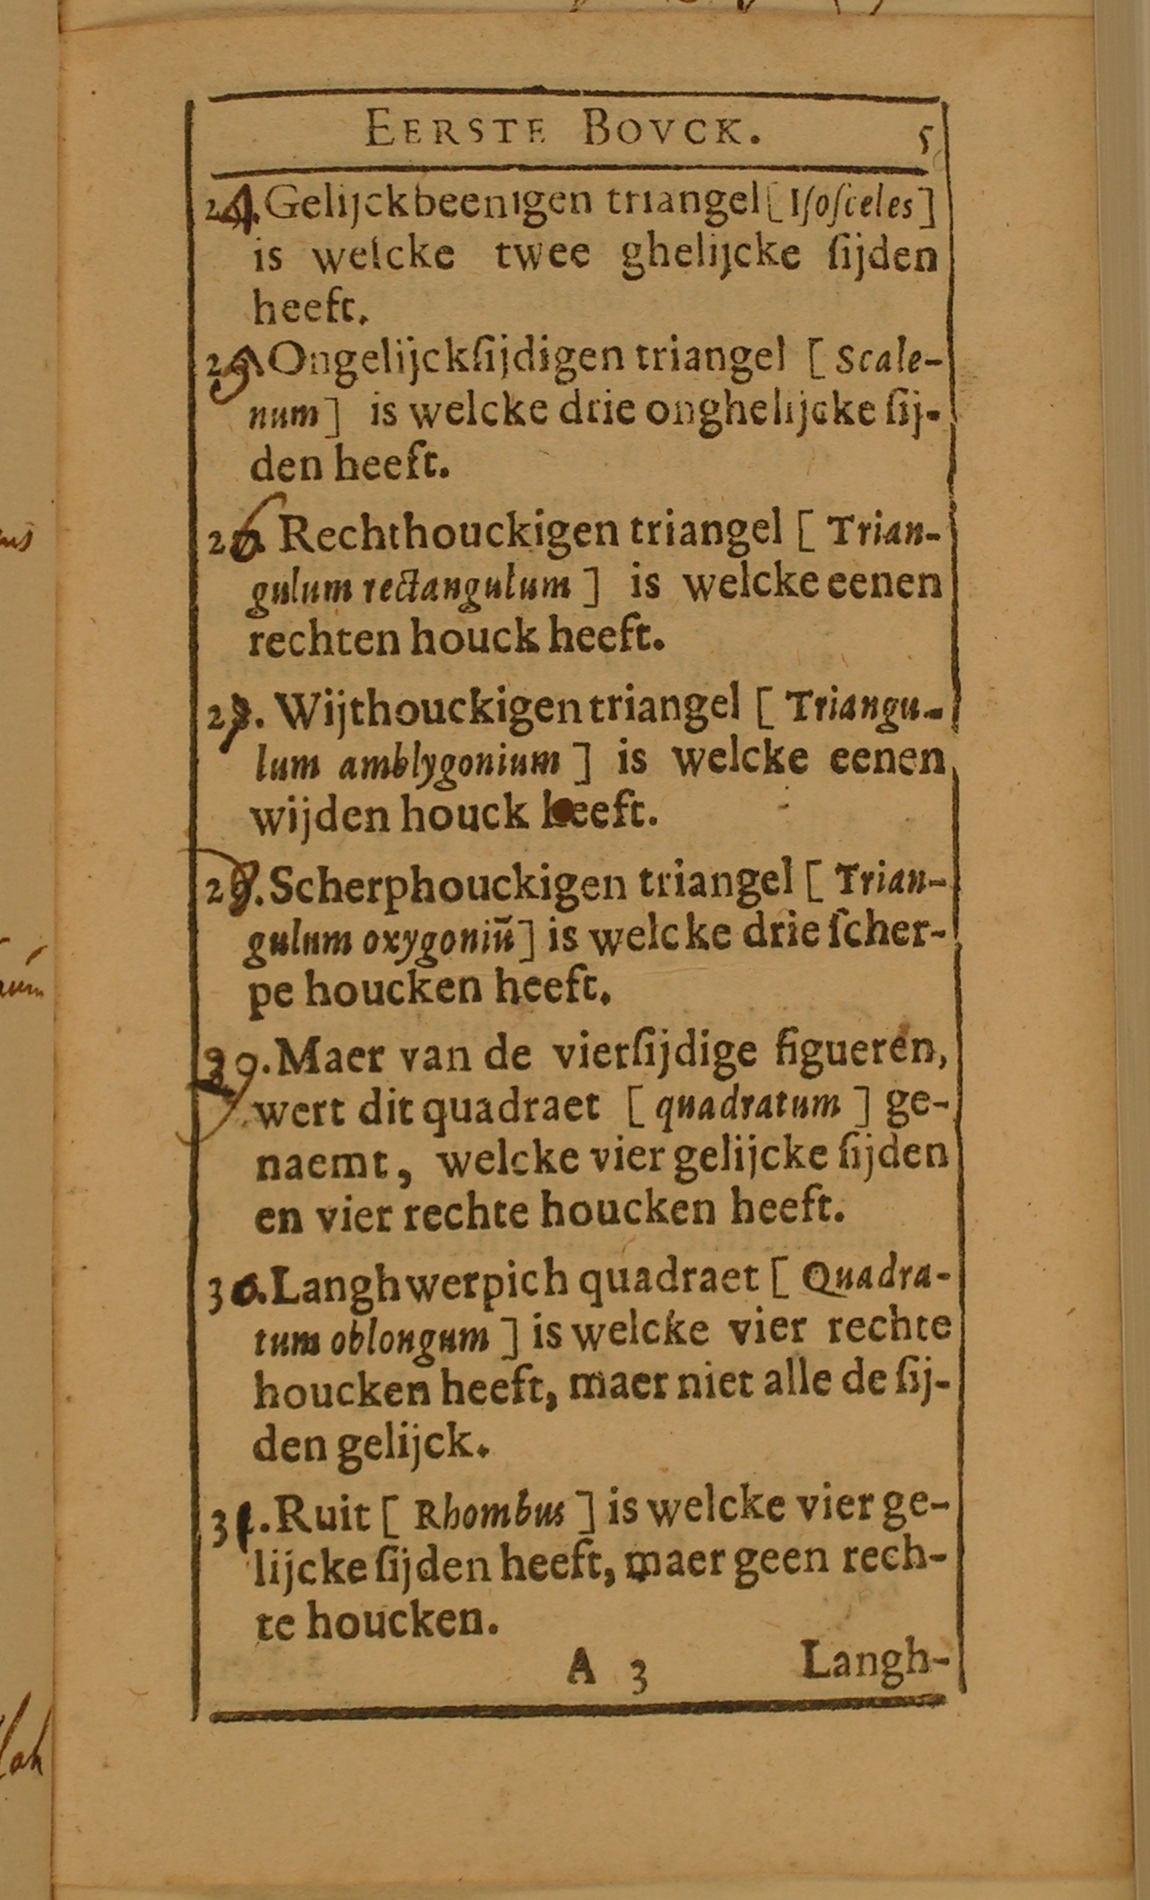 EERSTE BOVCK. 5
24. Gelijckbeenigen triangel [ Iſoſceles ]
is welcke twee ghelijcke ſijden
heeft.
25 Ongelijckſijdigen triangel [ Scale-
num ] is welcke drie onghelijcke ſij-
den heeft.
26 Rechthouckigen triangel [ Trian-
gulum rectangulum ] is welcke eenen
rechten houck heeft.
27. Wijthouckigen triangel [ Triangu-
lum amblygonium ] is welcke eenen
wijden houck heeft.
28. Scherphouckigen triangel [ Trian-
gulum oxygoniũ ] is welcke drie ſcher-
pe houcken heeft.
29. Maer van de vierſijdige figueren,
wert dit quadraet [ quadratum ] ge-
naemt, welcke vier gelijcke ſijden
en vier rechte houcken heeft.
30. Langhwerpich quadraet [ Quadra-
tum oblongum ] is welcke vier rechte
houcken heeft, maer niet alle de ſij-
den gelijck.
31. Ruit [ Rhombus ] is welcke vier ge-
lijcke ſijden heeft, maer geen rech-
te houcken.
A 3 Langh-